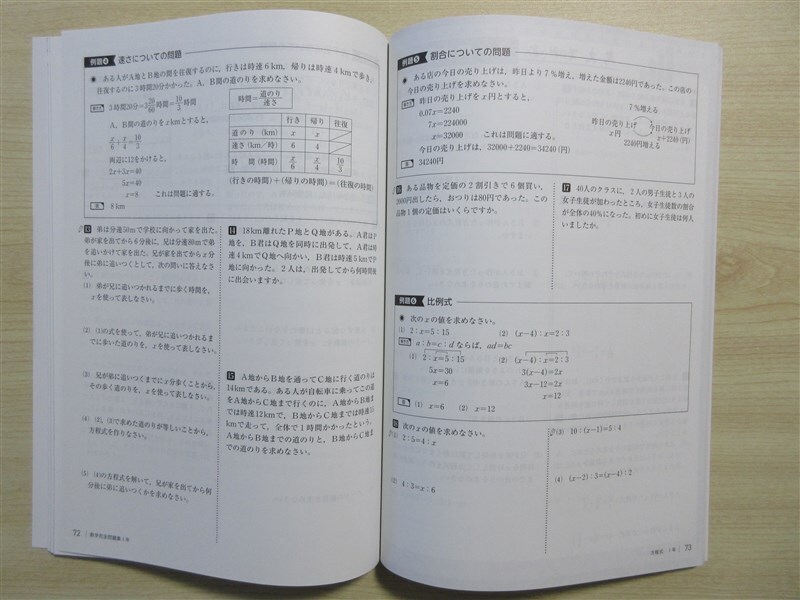 例題4 速さについての問題
ある人がA地とB地の間を往復するのに，行きは時速6km，帰りは時速4kmで歩き，
往復するのに3時間20分かかった。A，B間の道のりを求めなさい。
3時間20分=3 20/60 時間=10/3 時間
時間=道のり/速さ
A，B間の道のりをxkmとすると，
x/6+x/4=10/3
両辺に12をかけると，
2x+3x=40
5x=40
x=8 これは問題に適する。
答 8km
行き 帰り 往復
道のり (km) x x
速さ (km/時) 6 4
時間 (時間) x/6 x/4 10/3
(行きの時間)+(帰りの時間)=(往復の時間)
13 弟は分速50mで学校に向かって家を出た。
弟が家を出てから6分後に，兄は分速80mで弟
を追いかけて家を出た。兄が家を出てからx分
後に弟に追いつくとして，次の問いに答えなさ
い。
(1) 弟が兄に追いつかれるまでに歩く時間を，
xを使って表しなさい。
(2) (1)の式を使って，弟が兄に追いつかれるま
でに歩いた道のりを，xを使って表しなさい。
(3) 兄が弟に追いつくまでにx分歩くことから，
その歩く道のりを，xを使って表しなさい。
(4) (2)，(3)で求めた道のりが等しいことから，
方程式を作りなさい。
(5) (4)の方程式を解いて，兄が家を出てから何
分後に弟に追いつくかを求めなさい。
14 18km離れたP地とQ地がある。A君はP
地を，B君はQ地を同時に出発して，A君は時
速4kmでQ地へ向かい，B君は時速5kmでP
地に向かった。2人は，出発してから何時間後
に出会いますか。
15 A地からB地を通ってC地に行く道のりは
14kmである。ある人が自転車に乗ってこの道
をA地からC地まで行くのに，A地からB地ま
では時速12kmで，B地からC地までは時速15
kmで走って，全体で1時間かかったという。
A地からB地までの道のりと，B地からC地ま
での道のりを求めなさい。
72
例題5 割合についての問題
ある店の今日の売り上げは，昨日より7%増え，増えた金額は2240円であった。この店の
今日の売り上げを求めなさい。
昨日の売り上げをx円とすると，
0.07x=2240
7x=224000
x=32000 これは問題に適する。
今日の売り上げは，32000+2240=34240(円)
答 34240円
7%増える
昨日の売り上げ 今日の売り上げ
x円 x+2240(円)
2240円増える
16 ある品物を定価の2割引きで6個買い，
2000円出したら，おつりは80円であった。この
品物1個の定価はいくらですか。
17 40人のクラスに，2人の男子生徒と3人の
女子生徒が加わったところ，女子生徒数の割合
が全体の40%になった。初めに女子生徒は何人
いましたか。
例題6 比例式
次のxの値を求めなさい。
(1) 2：x=5：15 (2) (x−4)：x=2：3
a：b=c：d ならば，ad=bc
(1) 2：x=5：15 (2) (x−4)：x=2：3
5x=30 3(x−4)=2x
x=6 3x−12=2x
x=12
答 (1) x=6 (2) x=12
18 次のxの値を求めなさい。
(1) 2：5=4：x
(2) 4：3=x：6
(3) 10：(x−1)=5：4
(4) (x−2)：3=(x−4)：2
73